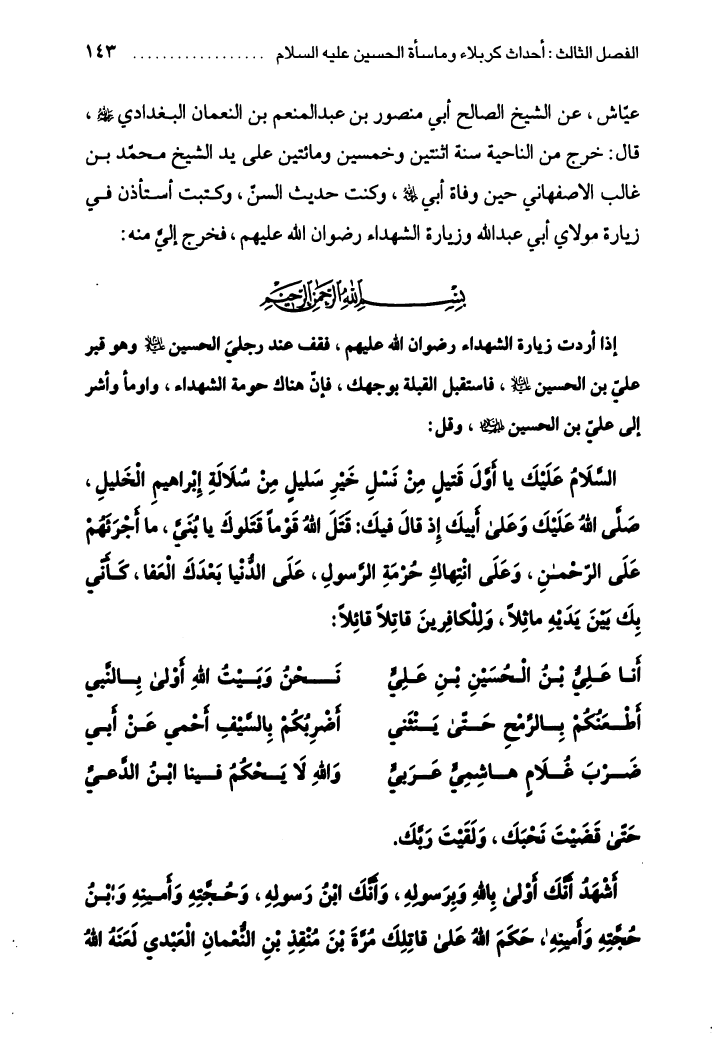 الفصل الثالث : أحداث كربلاء وماسأة الحسين عليه السلام .................. ١٤٣
عيّاش ، عن الشيخ الصالح أبي منصور بن عبدالمنعم بن النعمان البغدادي ﵀ ،
قال : خرج من الناحية سنة اثنتين وخمسين ومائتين على يد الشيخ محمّد بن
غالب الاصفهاني حين وفاة أبي ﵀ ، وكنت حديث السنّ ، وكتبت أستأذن في
زيارة مولاي أبي عبدالله وزيارة الشهداء رضوان الله عليهم ، فخرج إليَّ منه :
بِسْمِ اللهِ الرَّحْمٰنِ الرَّحِيمِ
إذا أردت زيارة الشهداء رضوان الله عليهم ، فقف عند رجليَ الحسين ﵇ وهو قبر
عليّ بن الحسين ﵇ ، فاستقبل القبلة بوجهك ، فإنّ هناك حومة الشهداء ، واومأ وأشر
إلى عليّ بن الحسين ، وقل :
السَّلامُ عَلَيْكَ يا أَوَّلَ قَتيلٍ مِنْ نَسْلِ خَيْرِ سَليلٍ مِنْ سُلَالَةِ إِبْراهيمِ الْخَليلِ ،
صَلَّى اللهُ عَلَيْكَ وَعَلىٰ أَبيكَ إِذ قالَ فيكَ : قَتَلَ اللهُ قَوْماً قَتَلوكَ يا بُنَيَّ ، ما أَجْرَئَهُمْ
عَلَى الرَّحْمـٰنِ ، وَعَلَى انْتِهاكِ حُرْمَةِ الرَّسولِ ، عَلَى الدُّنْيا بَعْدَكَ الْعَفا ، كَـأَنّي
بِكَ بَيْنَ يَدَيْهِ ماثِلاً ، وَلِلْكافِرينَ قاتِلاً قائِلاً :
أَنـا عَـلِيُّ بْـنُ الْـحُسَيْنِ بْنِ عَـلِيٍّ نَـحْنُ وَبَـيْتُ اللهِ أَوْلىٰ بِـالنَّبي
أَطْـعَنُكُمْ بِـالرُّمْحِ حَـتّىٰ يَـنْثَني أَضْرِبُكُمْ بِالسَّيْفِ أَحْمي عَـنْ أَبـي
ضَـرْبَ غُـلَامٍ هـاشِمِيٍّ عَـرَبيٍّ وَاللهِ لَا يَـحْكُمُ فـينا ابْـنُ الدَّعـيُّ
حَتّىٰ قَضَيْتَ نَحْبَكَ ، وَلَقَيْتَ رَبَّكَ.
أَشْهَدُ أَنَّكَ أَوْلىٰ بِاللهِ وَبِرَسولِهِ ، وَأَنَّكَ ابْنُ رَسولِهِ ، وَحُـجَّتِهِ وَأَمـينِهِ وَابْـنُ
حُجَّتِهِ وَأَمينِهِ ، حَكَمَ اللهُ عَلىٰ قاتِلِكَ مُرَّةَ بْنَ مُنْقِذِ بْنِ النُّعْمانِ الْعَبْدي لَعَنَهُ اللهُ